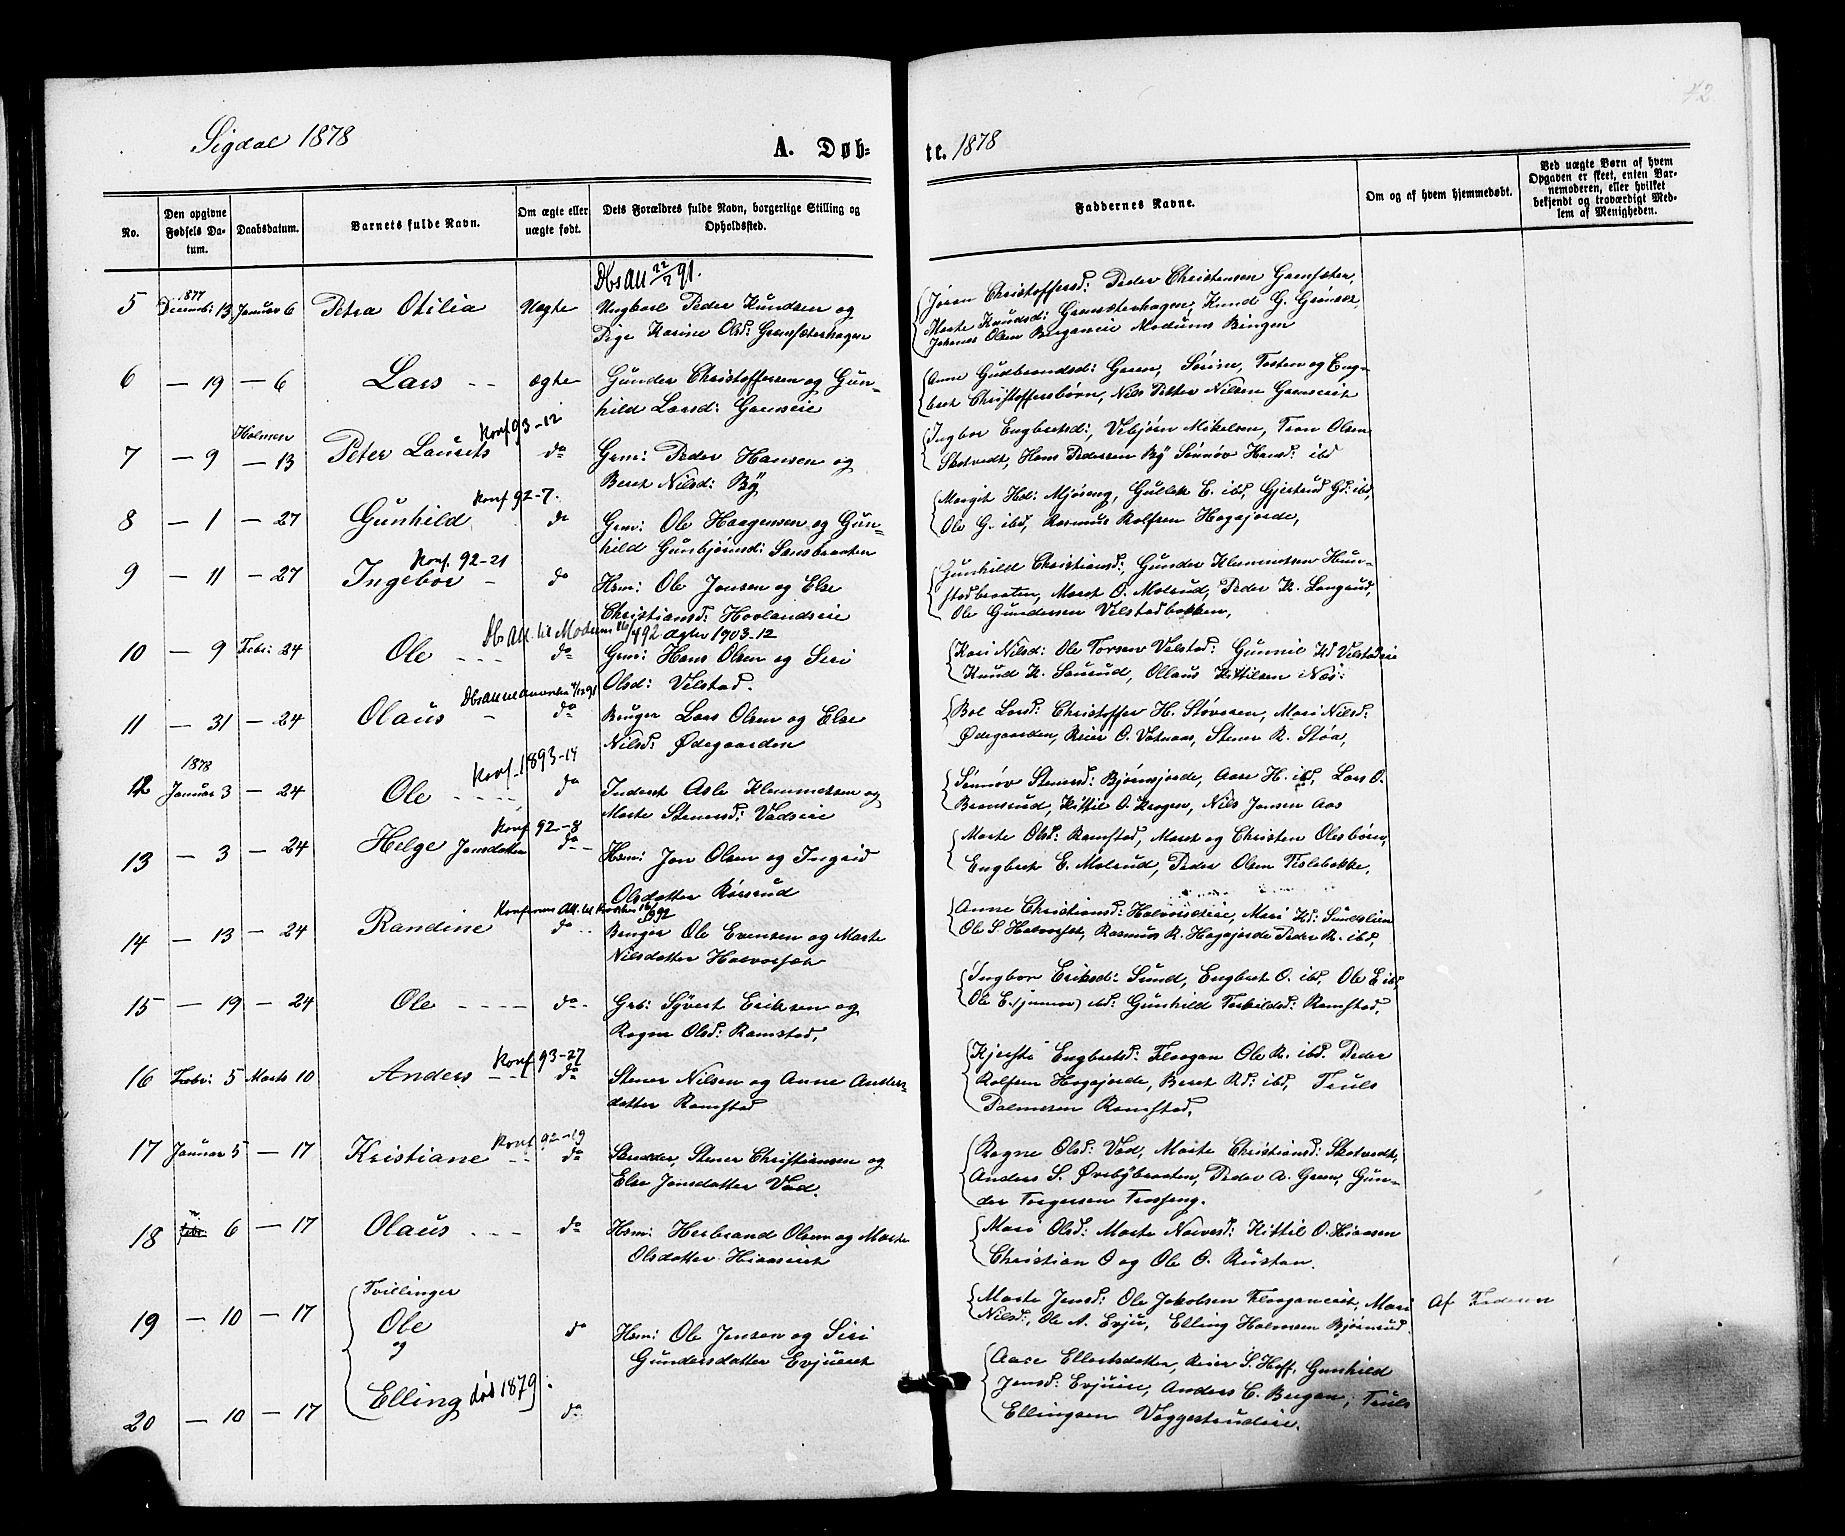 Sigdal 1878
A. Døb-
te. 1878
42
No.
Den opgivne Fødsels Datum.
Daabsdatum.
Barnets fulde Navn.
Om ægte eller uægte født.
Dets Forældres fulde Navn, borgerlige Stilling og Opholdssted.
Faddernes Navne.
Om og af hvem hjemmedøbt.
Ved uægte Børn af hvem Opgaven er skeet, enten Barnemoderen, eller hvilket bekjendt og troværdigt Medlem af Menigheden.
Dbs All 22/2 91.
1877
5 Decemb: 13 Januar 6 Petra Otilia Uægte Ungkarl Peder Knudsen og
Pige Karine Olsd: Grønsæterhagen
Jøran Christoffersd: Peder Christensen Grønsæter,
Marte Knudsd: Grønsæterhagen, Knud G. Grønset
Johanes Olsen Bergaveie Modums Bingen
6 — 19 — 6 Lars ægte Gunder Christoffersen og Gun-
hild Larsd: Greenseie
Anne Gudbrandsd: Green, Sørine, Torsten og Eng-
bret Christoffersbørn, Nils Petter Nilsen Greenseiet
Holmen
7 — 9 — 13 Peter Laurits Konf. 93-12 do Grm: Peder Hansen og
Beret Nilsd: By
Ingbor Engbretsd:, Vebjørn Mikelsen, Tron Olsen
Skotvedt, Hans Pedersen By Sønnøv Hansd: ibd
8 — 1 — 27 Gunhild Konf 92-7. do Grm: Ole Haagensen og Gun-
hild Gunbjørnsd: Sandsbraaten
Margit Hd: Mjøseng, Gullek E. ibd, Gjertrud Gd: ibd,
Ole G. ibd, Rasmus Rolfsen Hagajorde,
9 — 11 — 27 Ingebor Konf. 92-21 do Hsm: Ole Jonsen og Else
Christiansd: Hovlandseie
Gunhild Christiansd:, Gunder Klemmetsen Hun-
stadbraaten, Maret O. Molrud, Peder K. Langrud,
Ole Gundersen Velstadbakken,
10 — 9 Febr: 24 Ole Dbs All. til Modum 16/4 92 agter 1903-12 do Grm: Hans Olsen og Siri
Olsd: Velstad.
Kari Nilsd: Ole Torsen Velstad: Gunnil Kd Velstadeie
Knud K. Saurud, Ollaus Kittilsen Næs:
11 — 31 — 24 Olaus do Bruger Lars Olsen og Else
Nilsd: Ødegaarden
Boel Larsd: Christoffer H. Støvesen, Mari Nilsd:
Ødegaarden, Reier O. Vatnaas, Stener R. Stoa,
1878
12 Januar 3 — 24 Ole Konf. 1893-14 do Inderst Asle Klemmetsen og
Marte Stenersd: Vadseie
Sønnøv Stenersd: Bjørnsjorde, Aase H. ibd, Lars O.
Bramsrud, Kittil O. Kragen, Nils Jonsen Aas
13 — 3 — 24 Helge Jonsdatter Konf 92-8 do Hsm: Jon Olsen og Ingrid
Olsdatter Rørsrud
Marte Olsd: Ramstad, Maret og Christen Olesbørn,
Engbret E. Molrud, Peder Olsen Tislebakke,
14 — 13 — 24 Randine do Bruger Ole Evensen og Marte
Nilsdatter Halvorsæt
Anne Christiansd: Halvorsæteie, Mari Kd: Sundslien
Ole S. Halvorset, Rasmus R. Hagajorde Peder R. ibd,
15 — 19 — 24 Ole do Grb: Syvert Eriksen og
Ragne Olsd: Ramstad,
Ingbor Eriksd: Sund, Engbret O. ibd, Ole E ibd
Ole E. (junior) ibd: Gunhild Torkildsd: Ramstad,
16 Febr: 5 Marts 10 Anders Konf 93-27 do Stener Nilsen og Anne Anders-
datter Ramstad
Kjersti Engbretsd: Flaagan Ole R. ibd. Peder
Rolfsen Hagajorde, Beret Rd: ibd, Truls
Palmesen Ramstad,
17 Januar 5 — 17 Kristiane Konf 92-19 do Skrædder, Stener Christiansen og
Else Jonsdatter Vad.
Ragne Olsd: Vad, Marte Christiansd: Skotvedt,
Anders S. Øvrebybraaten, Peder A. Green, Gun-
der Torgersen Trosseng.
18 6 — 17 Olaus do Hsm: Herbrand Olsen og Marte
Olsdatter Hiaaseiet
Mari Olsd: Marte Narvesd: Kittil O. Hiaasen
Christian O og Ole O. Rustan.
Tvillinger
19 — 10 — 17 Ole do Hsm: Ole Jensen og Siri
og
Gundersdatter Evjueiet
Marte Jensd: Ole Jakobsen Flaaganeiet, Mari
Nilsd:, Ole A. Evju, Elling Halvorsen Bjørnerud.
Af Faderen
20 — 10 — 17 Elling død 1879. do
Aase Ellertsdatter, Reier S. Hoff, Gunhild
Jensd: Evjueie, Anders C. Bergan, Truls
Ellingsen Væggesrudeie.